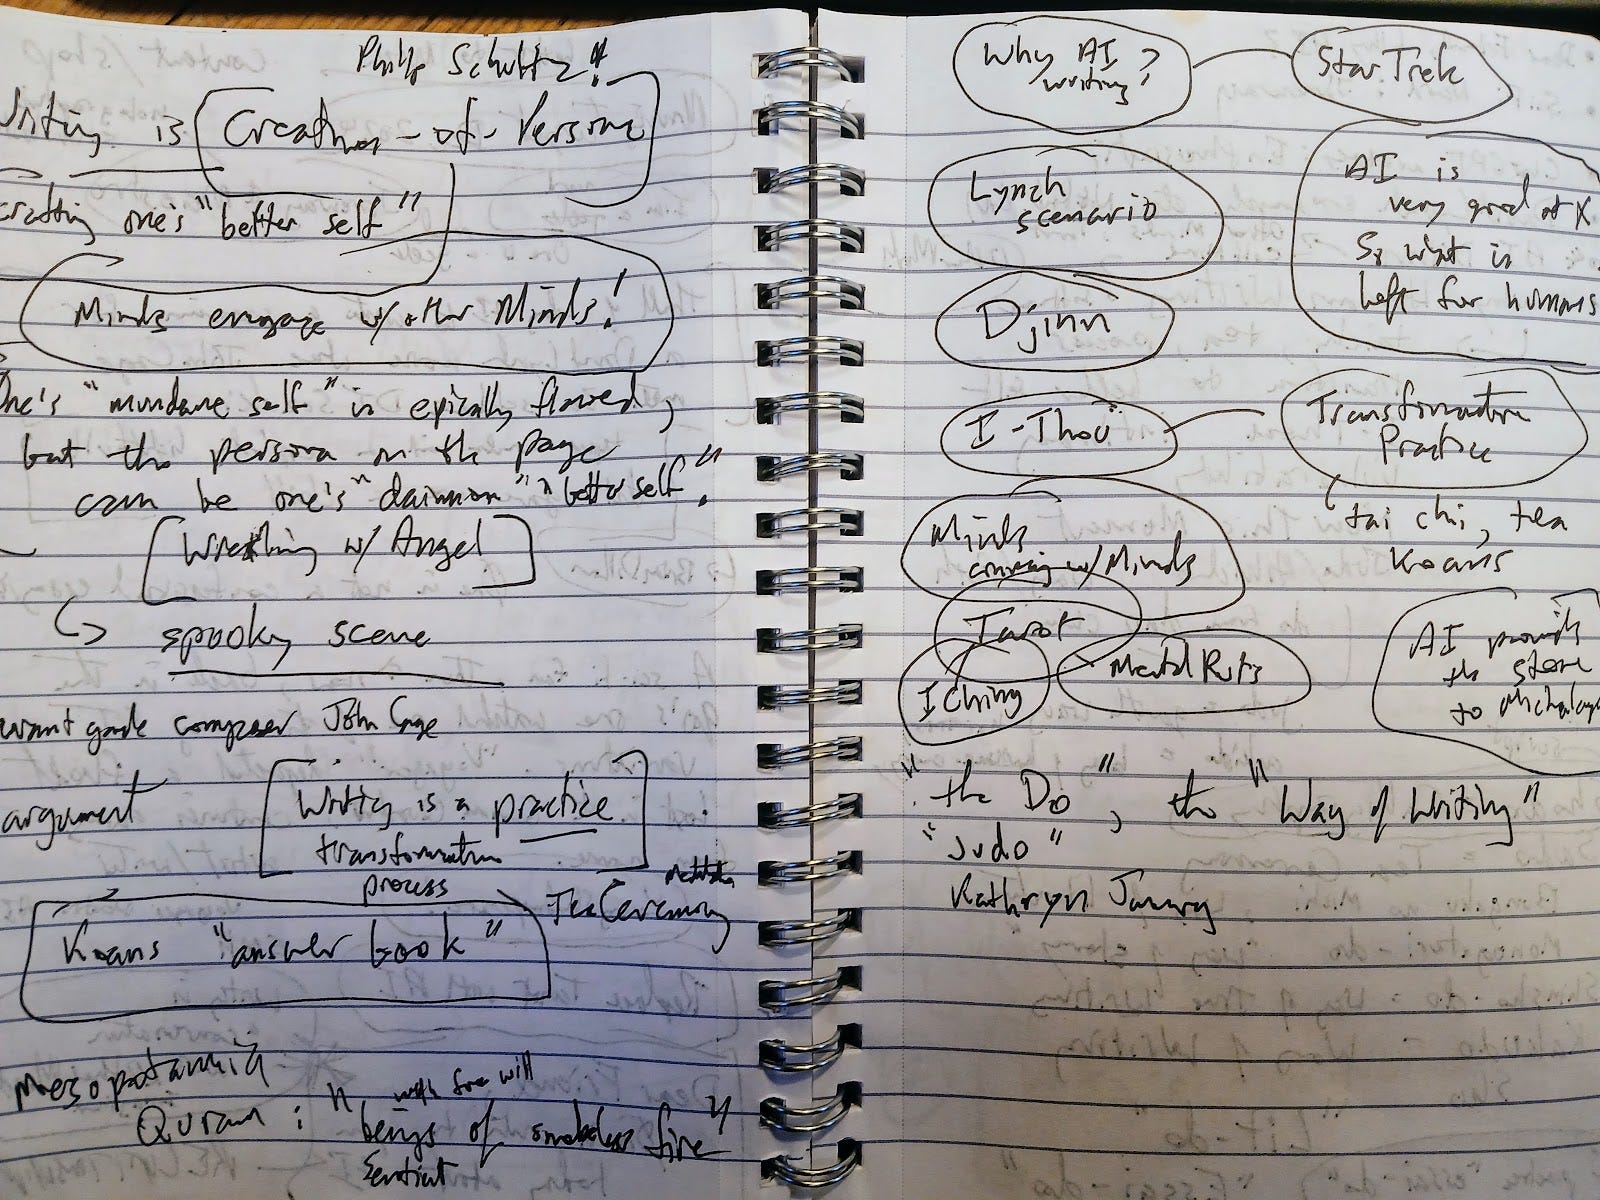 Philip Schultz!"
Writing is Creation-of-Persona
crafting one's "better self"
Minds engage w/ other Minds!
One's "mundane self" is epically flawed,
but the persona on the page
can be one's "daimon" "better self".
Wrestling w/ Angel
spooky scene
avant garde composer John Cage
argument
Writing is a practice
transformation
process
Tea Ceremony
Koans "answer book"
Mesopotamia
with free will
Quran: "beings of smokeless fire"
sentient
Why AI writing?
Star Trek
Lynch scenario
AI is
very good at X
So what is
left for humans
Djinn
I-Thou
Transformation
Practice
tai chi, tea
Koans
Minds
w/ Minds
Tarot
I Ching
Mental Ruts
AI provides
the stone
to
"the Do", the "Way of Writing"
"Judo"
Kathryn